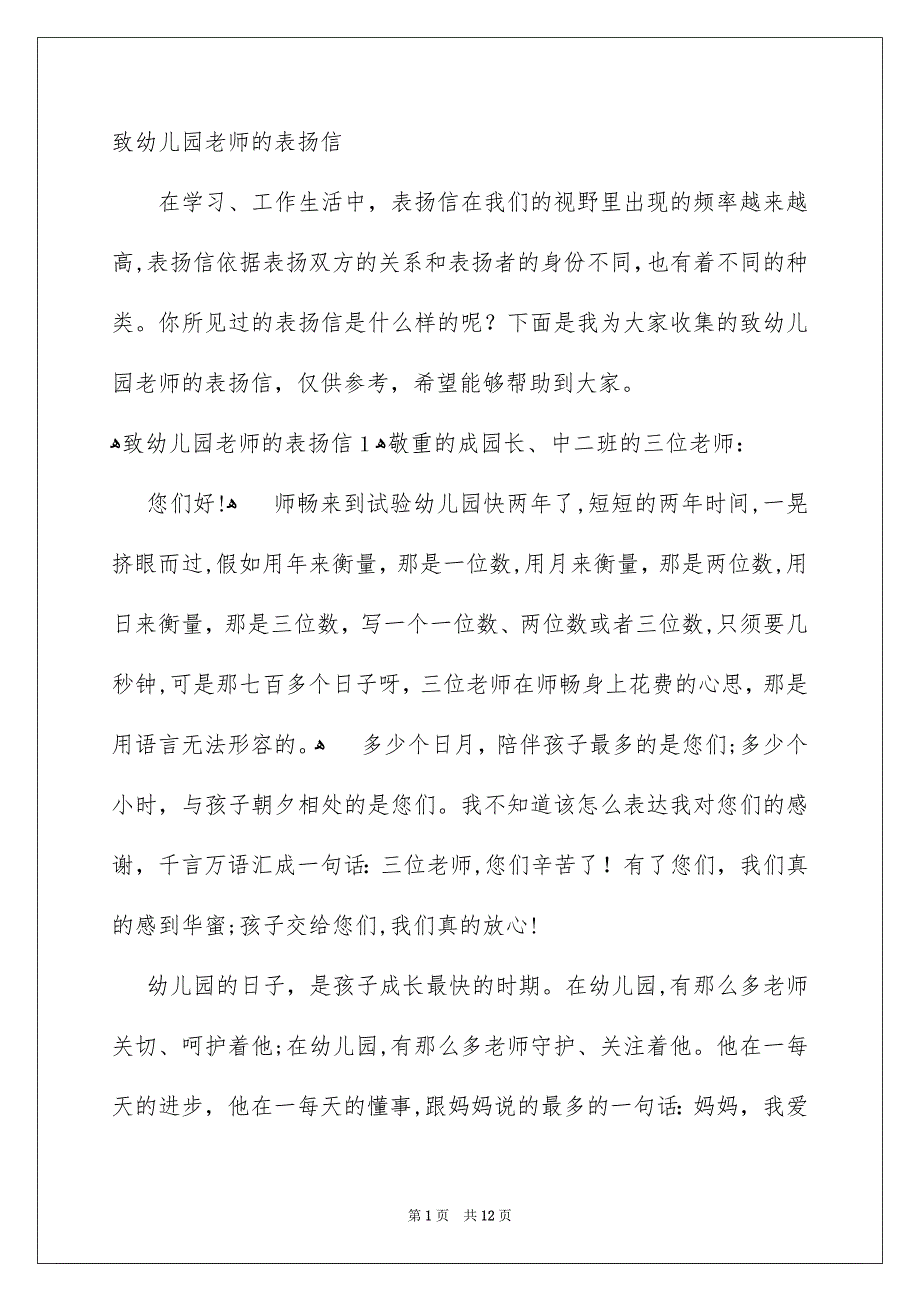 致幼儿园老师的表扬信
在学习、工作生活中，表扬信在我们的视野里出现的频率越来越
高,表扬信依据表扬双方的关系和表扬者的身份不同，也有着不同的种
类。你所见过的表扬信是什么样的呢？下面是我为大家收集的致幼儿
园老师的表扬信，仅供参考，希望能够帮助到大家。
ﻫ致幼儿园老师的表扬信 1 ﻫ敬重的成园长、中二班的三位老师：
您们好!ﻫ 师畅来到试验幼儿园快两年了,短短的两年时间,一晃
挤眼而过,假如用年来衡量，那是一位数,用月来衡量，那是两位数,用
日来衡量，那是三位数，写一个一位数、两位数或者三位数,只须要几
秒钟,可是那七百多个日子呀，三位老师在师畅身上花费的心思，那是
用语言无法形容的。ﻫ 多少个日月，陪伴孩子最多的是您们;多少个
小时，与孩子朝夕相处的是您们。我不知道该怎么表达我对您们的感
谢，千言万语汇成一句话：三位老师,您们辛苦了！有了您们，我们真
的感到华蜜;孩子交给您们,我们真的放心!
幼儿园的日子，是孩子成长最快的时期。在幼儿园,有那么多老师
关切、呵护着他;在幼儿园,有那么多老师守护、关注着他。他在一每
天的进步，他在一每天的懂事,跟妈妈说的最多的一句话：妈妈，我爱
第 1 页 共 12 页